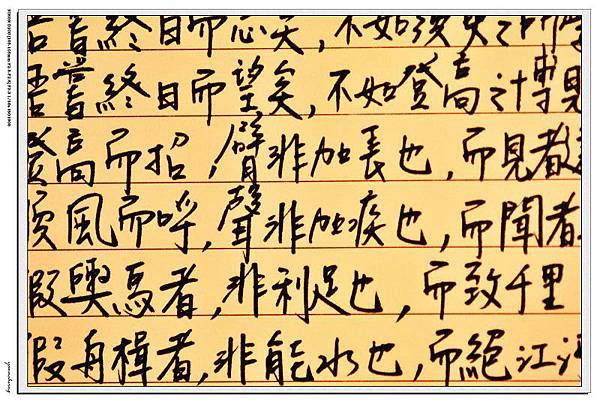 吾嘗終日而思矣,不如須臾之所學
吾嘗終日而望矣,不如登高之博見
登高而招,臂非加長也,而見者
順風而呼,聲非加疾也,而聞者
假輿馬者,非利足也,而致千里
假舟楫者,非能水也,而絕江河